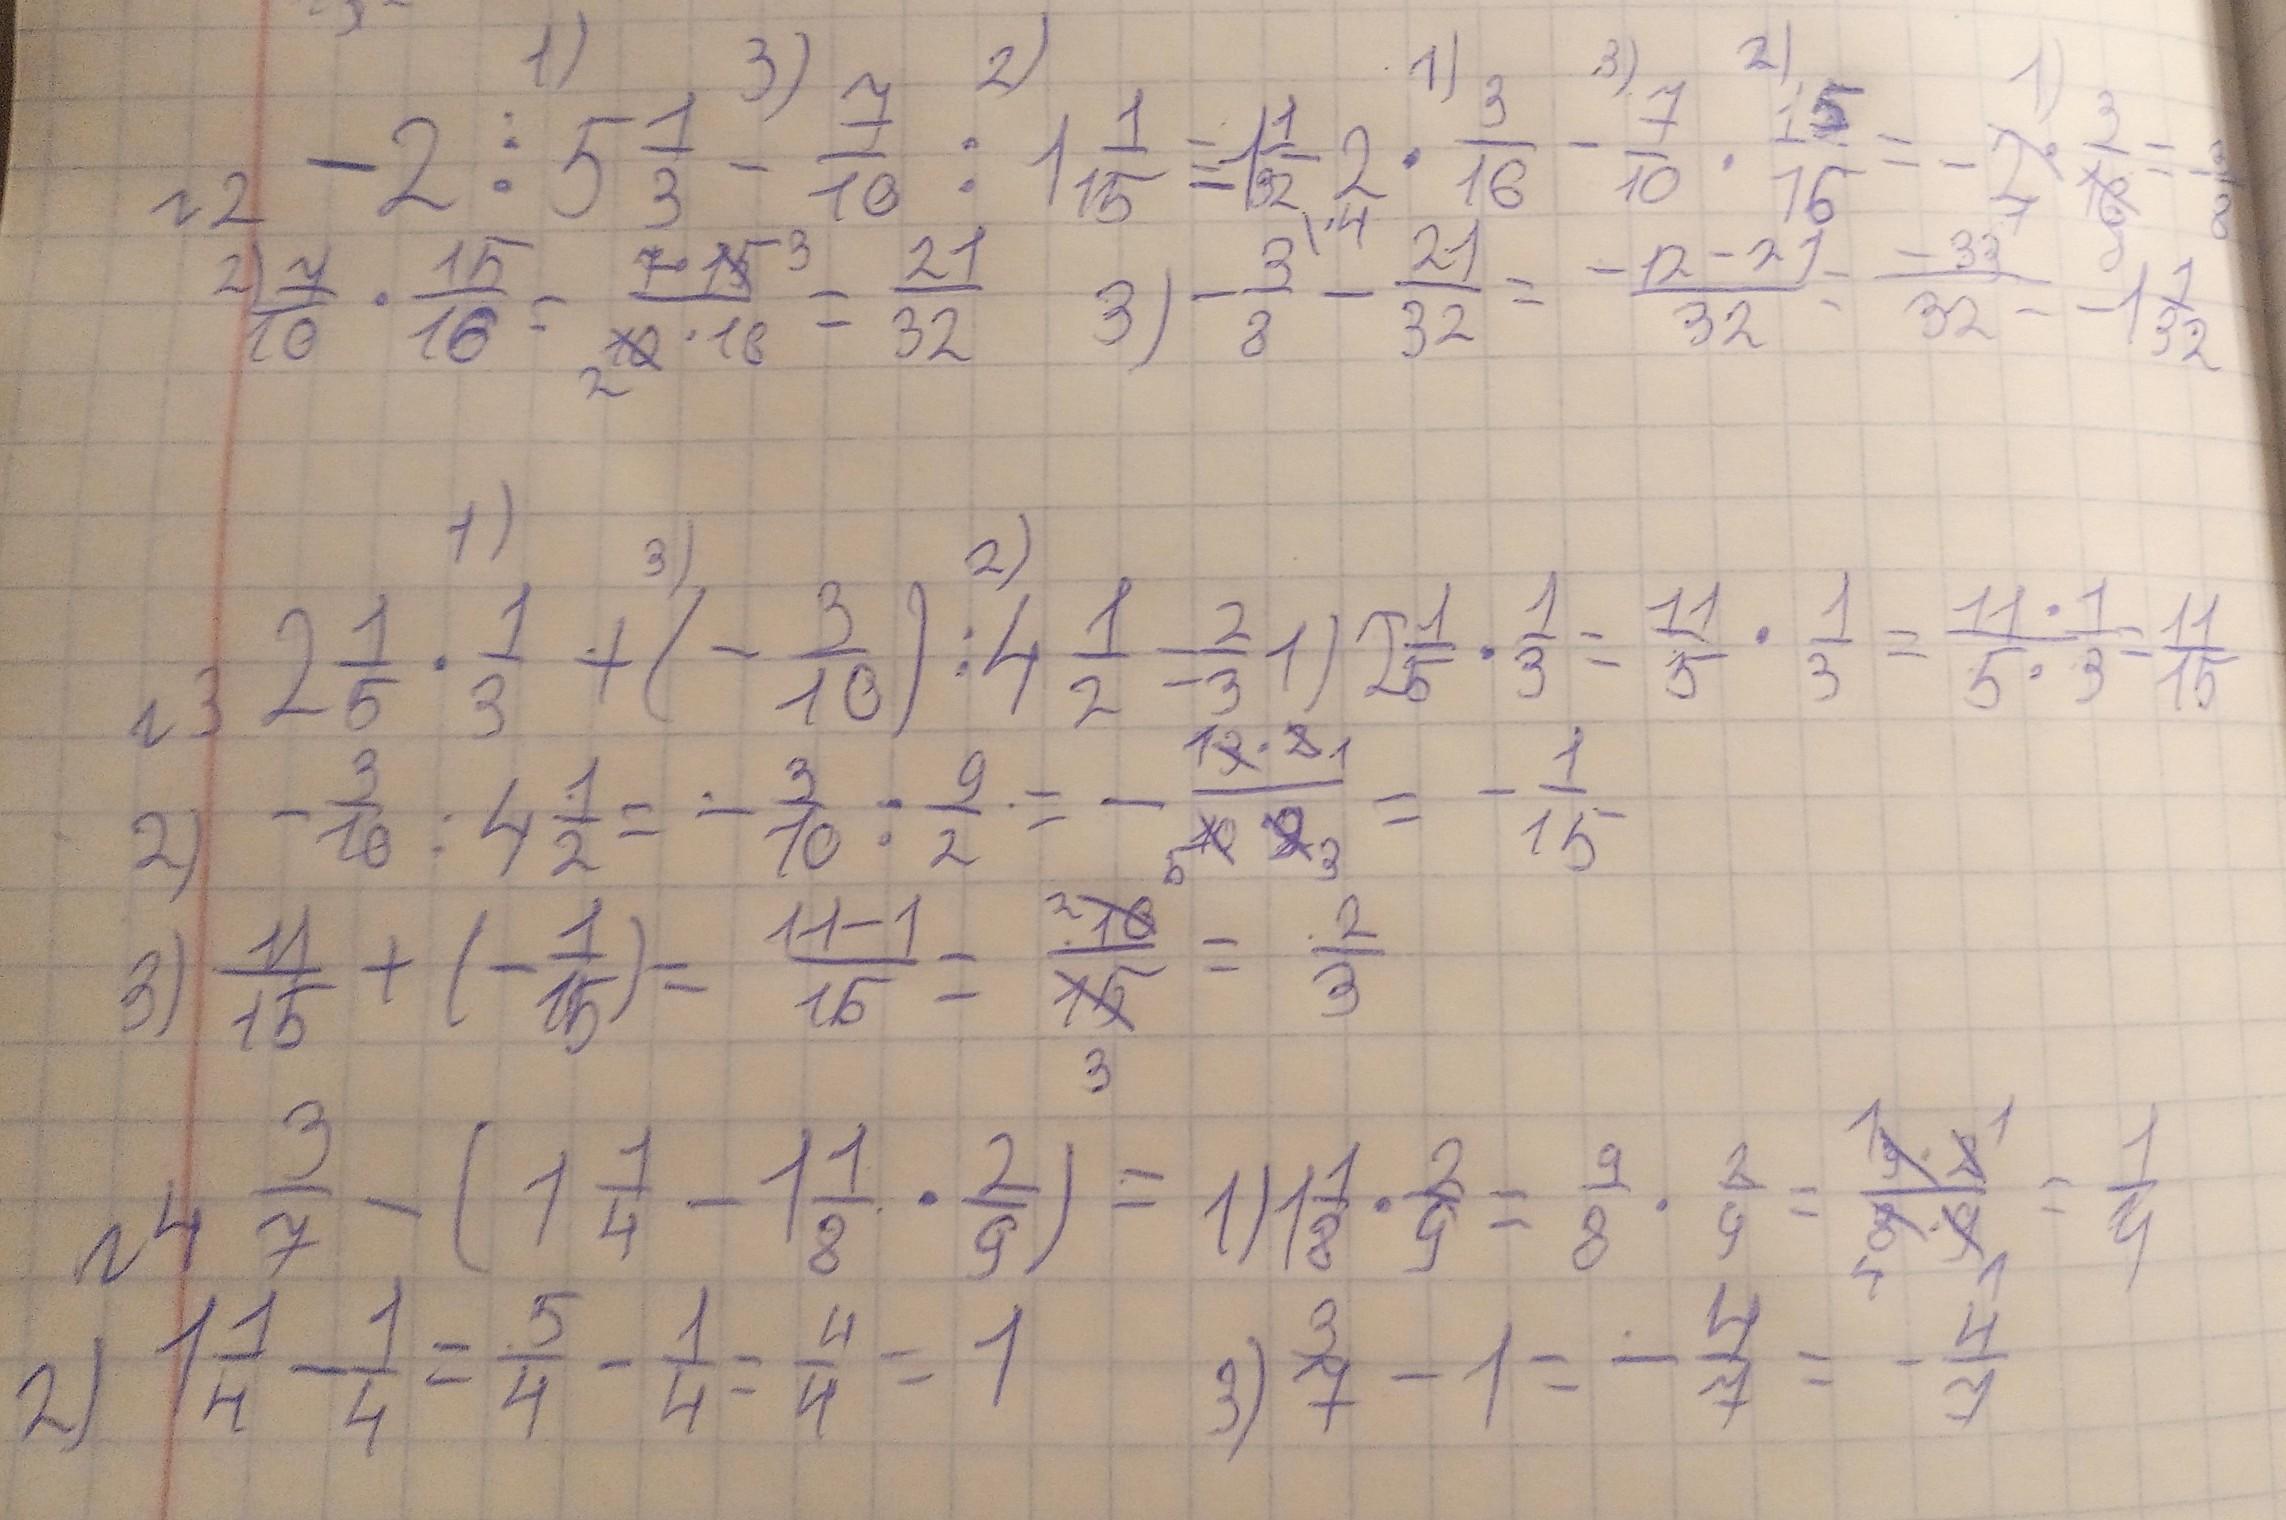 1) 3) 2) 1) 3) 2) 1)
№2 -2 : 5 1/3 - 7/10 : 1 1/15 = -1 1/32 2 · 3/16 - 7/10 · 15/16 = -2 · 3/16 = 3/8
2) 7/10 · 15/16 = 7·15 3/2 10·16 = 21/32 3) -3/8 \·4 - 21/32 = -12-21/32 = -33/32 = -1 1/32
1) 3) 2)
№3 2 1/5 · 1/3 + (-3/10) : 4 1/2 = 2/3 1) 2 1/5 · 1/3 = 11/5 · 1/3 = 11·1/5·3 = 11/15
2) -3/10 : 4 1/2 = -3/10 : 9/2 = - 1 3·2 1/5 10·9 3 = -1/15
3) 11/15 + (-1/15) = 11-1/15 = 2 10/15 3 = 2/3
№4 3/7 - (1 1/4 - 1 1/8 · 2/9) = 1) 1 1/8 · 2/9 = 9/8 · 2/9 = 1 9·2 1/4 8·9 1 = 1/4
2) 1 1/4 - 1/4 = 5/4 - 1/4 = 4/4 = 1 3) 3/7 - 1 = -4/7 = -4/7